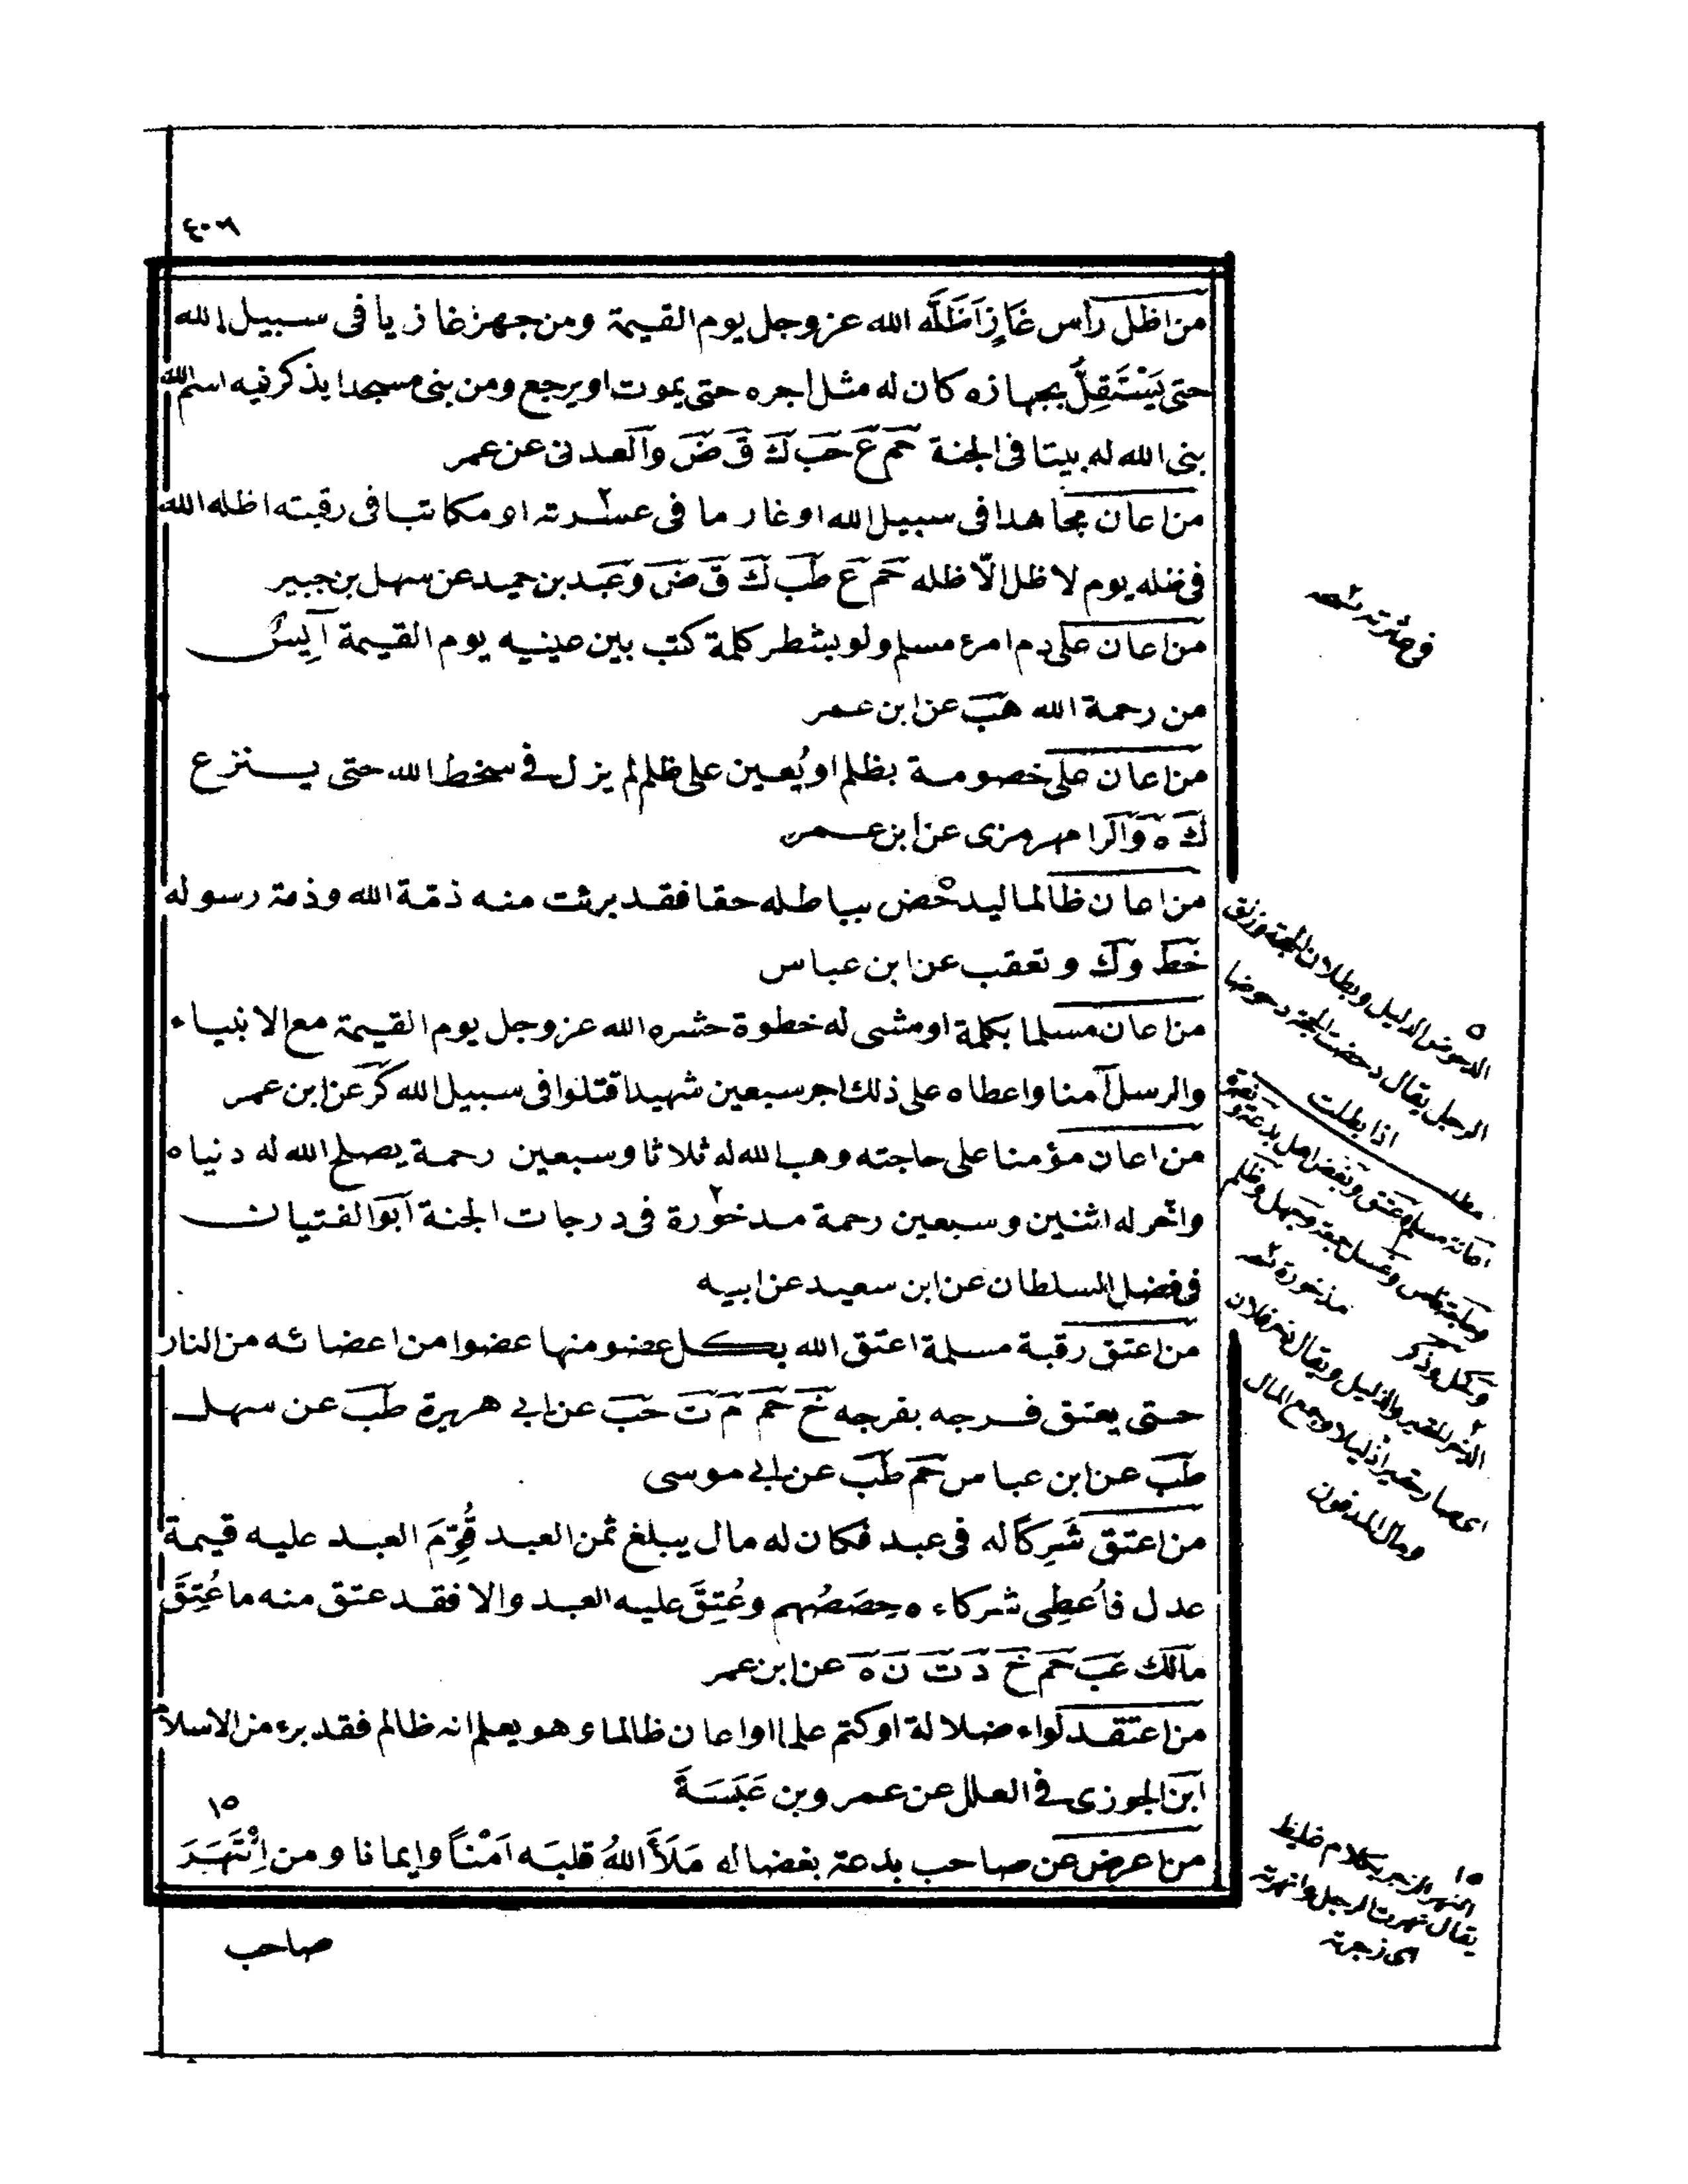 ٤٠٣
من اظل رأس غَازٍ اَظَلَّه الله عز وجل يوم القيمة ومن جهز غازيا فى سبيل الله
حتى يَسْتَقِلَّ بجهازه كان له مثل اجره حتى يموت او يرجع ومن بنى مسجدا يذكر فيه اسم الله
بنى الله له بيتا فى الجنة حم ع حب ك ق ض والعدنى عن عمر
من اعان مجاهدا فى سبيل الله او غارما فى عسرته او مكاتبا فى رقبته اظله الله
فى ظله يوم لا ظل الّا ظله حم ع طب ك ق ض وعبد بن حميد عن سهل بن جبير
من اعان على دم امرء مسلم ولو بشطر كلمة كتب بين عينيه يوم القيمة آيِسٌ
من رحمة الله هب عن ابن عمر
من اعان على خصومة بظلم او يُعين على ظلم لم يزل فى سخط الله حتى ينزع
ك ه والرامهرمزى عن ابن عمر
من اعان ظالما ليدحض بباطله حقا فقد برئت منه ذمة الله وذمة رسوله
خط وك وتعقب عن ابن عباس
من اعان مسلما بكلمة او مشى له خطوة حشره الله عز وجل يوم القيمة مع الانبياء
والرسل آمنا واعطاه على ذلك اجر سبعين شهيدا قتلوا فى سبيل الله كر عن ابن عمر
من اعان مؤمنا على حاجته وهب الله له ثلاثا وسبعين رحمة يصلح الله له دنياه
واخر له اثنين وسبعين رحمة مدخورة فى درجات الجنة ابو الفتيان
فى فضل السلطان عن ابن سعيد عن ابيه
من اعتق رقبة مسلمة اعتق الله بكل عضو منها عضوا من اعضائه من النار
حتى يعتق فرجه بفرجه خ حم م ت حب عن ابى هريرة طب عن سهل
طب عن ابن عباس حم طب عن ابى موسى
من اعتق شَرِكاً له فى عبد فكان له مال يبلغ ثمن العبد قُوِّمَ العبد عليه قيمة
عدل فاُعطِى شركاءه حِصَصُهم وعُتِقَ عليه العبد والا فقد عتق منه ما عُتِقَ
مالك عب حم خ د ت ن ه عن ابن عمر
من اعتقد لواء ضلالة او كتم علما او اعان ظالما وهو يعلم انه ظالم فقد برء من الاسلام
ابن الجوزى فى العلل عن عمرو بن عَبَسَةَ
من اعرض عن صاحب بدعة بغضا له مَلَأَ اللهُ قلبَه اَمْناً وايمانا ومن اِنْتَهَرَ
صاحب
الدحوض الدليل وبطلان الحجة وزلق
الرجل يقال دحضت الحجة دحوضا
اذا بطلت
مذخورة نسخه
ومال المدفون
١٥
النهر الزجر بكلام غليظ
يقال نهرت الرجل وانتهرته
اى زجرته